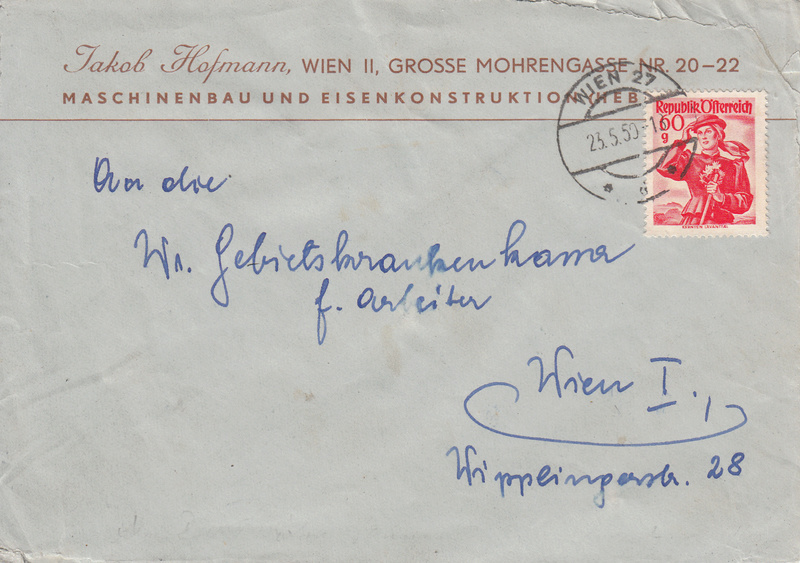 Jakob Hofmann, WIEN II, GROSSE MOHRENGASSE NR. 20–22
MASCHINENBAU UND EISENKONSTRUKTION, HEB
WIEN 27
23.5.50
Republik Österreich
60
g
KÄRNTEN LAVANTTAL
An die
Wr. Gebietskrankenkassa
f. Arbeiter
Wien I.,
Wipplingerstr. 28